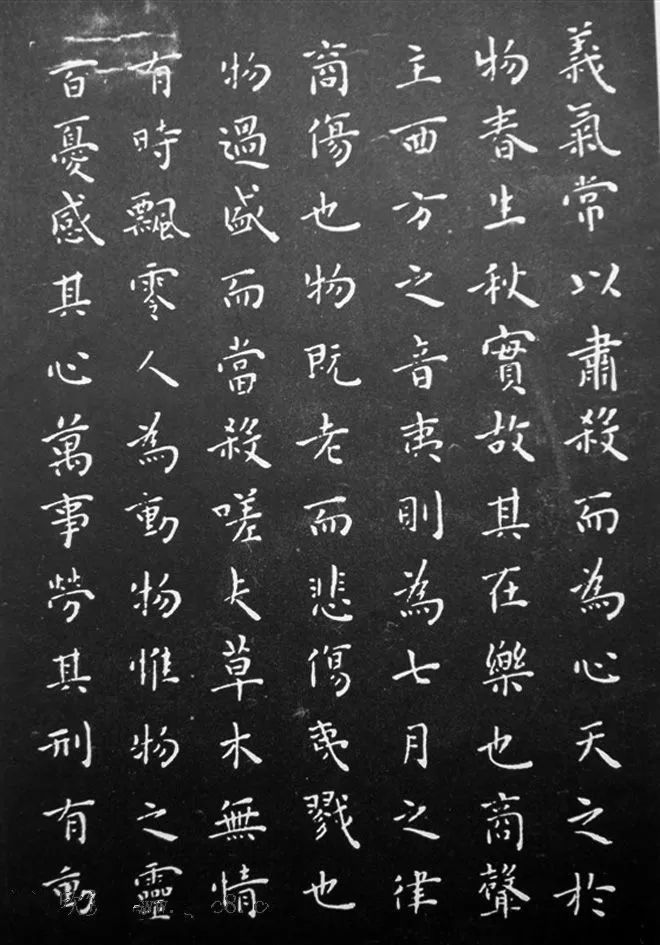 義氣常以肅殺而為心天之於
物春生秋實故其在樂也商聲
主西方之音夷則為七月之律
商傷也物既老而悲傷夷戮也
物過盛而當殺嗟夫草木無情
有時飄零人為動物惟物之靈
百憂感其心萬事勞其刑有動